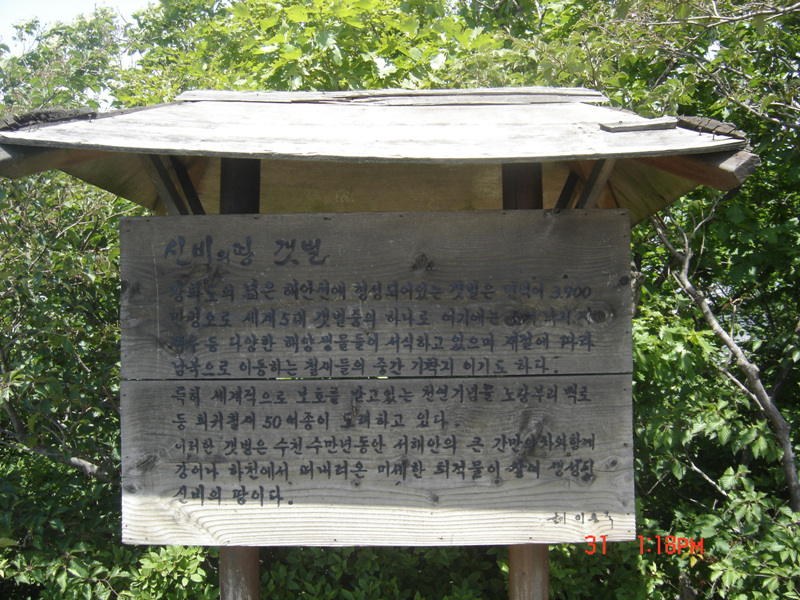 신비의땅 갯벌
강화도의 넓은 해안선에 형성되어있는 갯벌은 면적이 3,900
만평으로 세계5대 갯벌중의 하나로 여기에는 낙지
등 다양한 해양생물들이 서식하고 있으며 계절에 따라
남북으로 이동하는 철새들의 중간 기착지 이기도 하다.
특히 세계적으로 보호를 받고있는 천연기념물 노랑부리 백로
등 희귀철새 50여종이 도래하고 있다.
이러한 갯벌은 수천수만년동안 서해안의 큰 간만의차와함께
강이나 하천에서 떠내려온 미세한 퇴적물이 쌓여 생성된
신비의 땅이다.
31 1:18PM